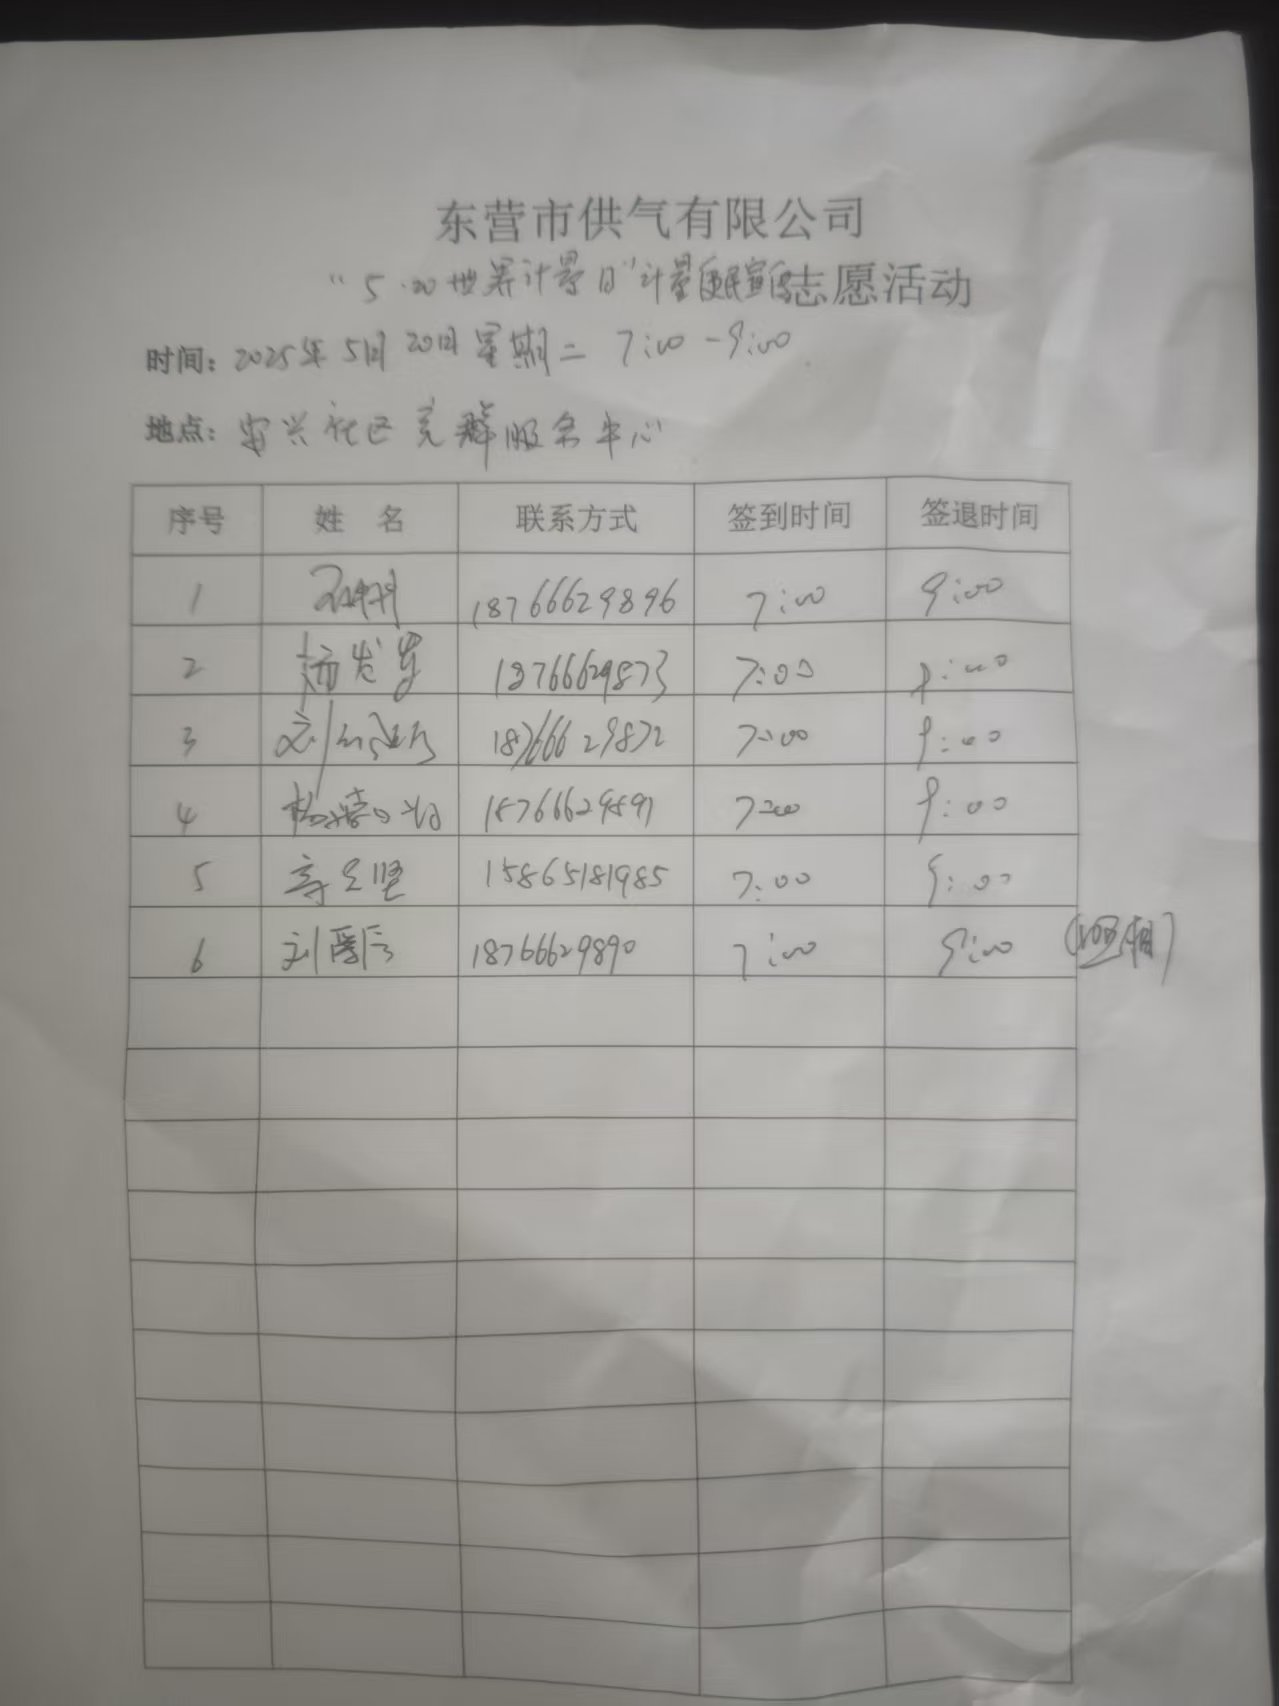 东营市供气有限公司
"5.20世界计量日"计量便民宣传志愿活动
时间：2025年5月20日星期二 7:00-9:00
地点：安兴社区党群服务中心
序号 姓名 联系方式 签到时间 签退时间
1 18766629896 7:00 9:00
2 18766629873 7:00 9:00
3 刘 18766629872 7:00 9:00
4 杨 18766629891 7:00 9:00
5 15865181985 7:00 9:00
6 刘 18766629890 7:00 9:00